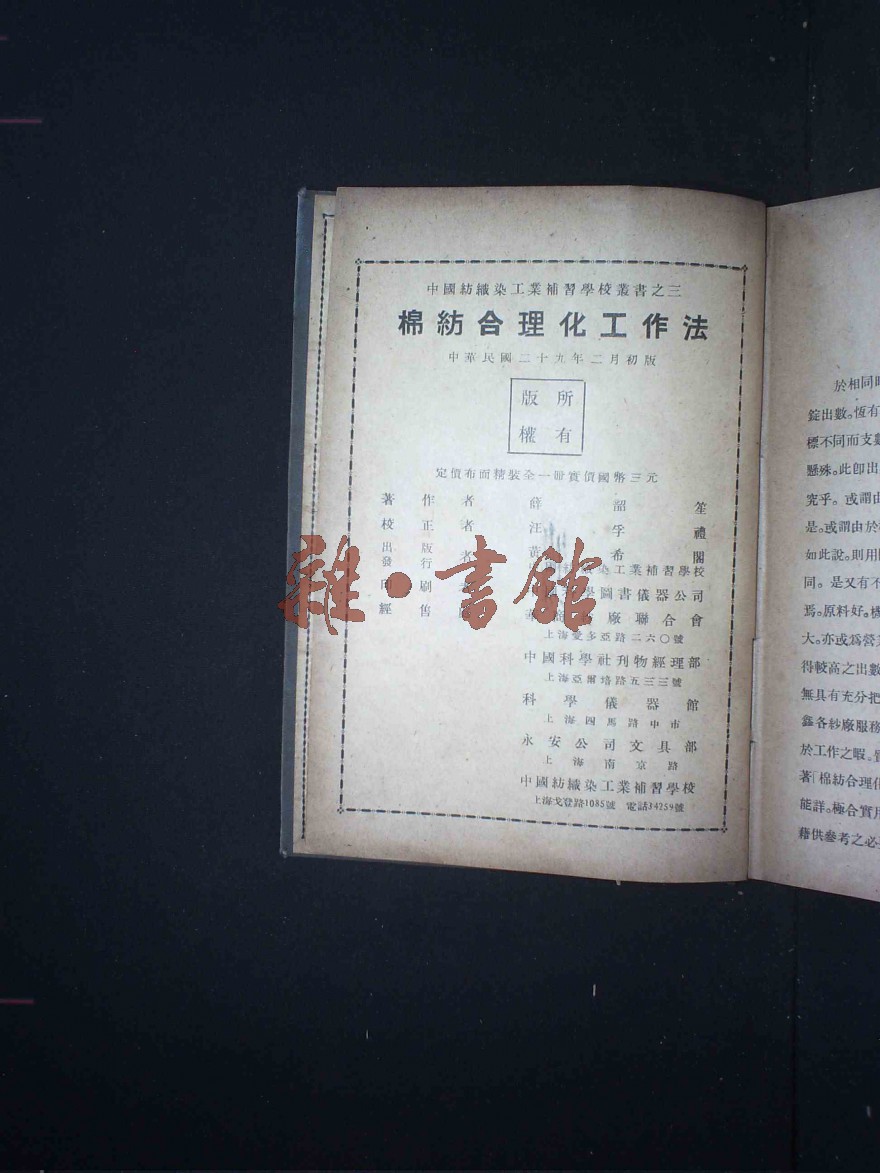 中國紡織染工業補習學校叢書之三
棉紡合理化工作法
中華民國二十九年二月初版
版所
權有
定價布面精裝全一册實價國幣三元
著作者 薛韶笙
校正者 汪孚禮
黃希閣
出版
發行者
染工業補習學校
刷 學圖書儀器公司
經售 廠聯合會
上海愛多亞路二六〇號
中國科學社刊物經理部
上海亞爾培路五三三號
科學儀器館
上海四馬路中市
永安公司文具部
上海南京路
中國紡織染工業補習學校
上海戈登路1085號 電話34259號
雜·書館
於相同
錠出數。恆有
標不同而支數
懸殊。此卽出
究乎。或謂由於
是。或謂由於
如此說。則用
同。是又有不
焉。原料好。機
大。亦或爲營
得較高之出數
無具有充分把
鑫各紗廠服務
於工作之暇。
著「棉紡合理化
能詳。極合實用
藉供參考之必